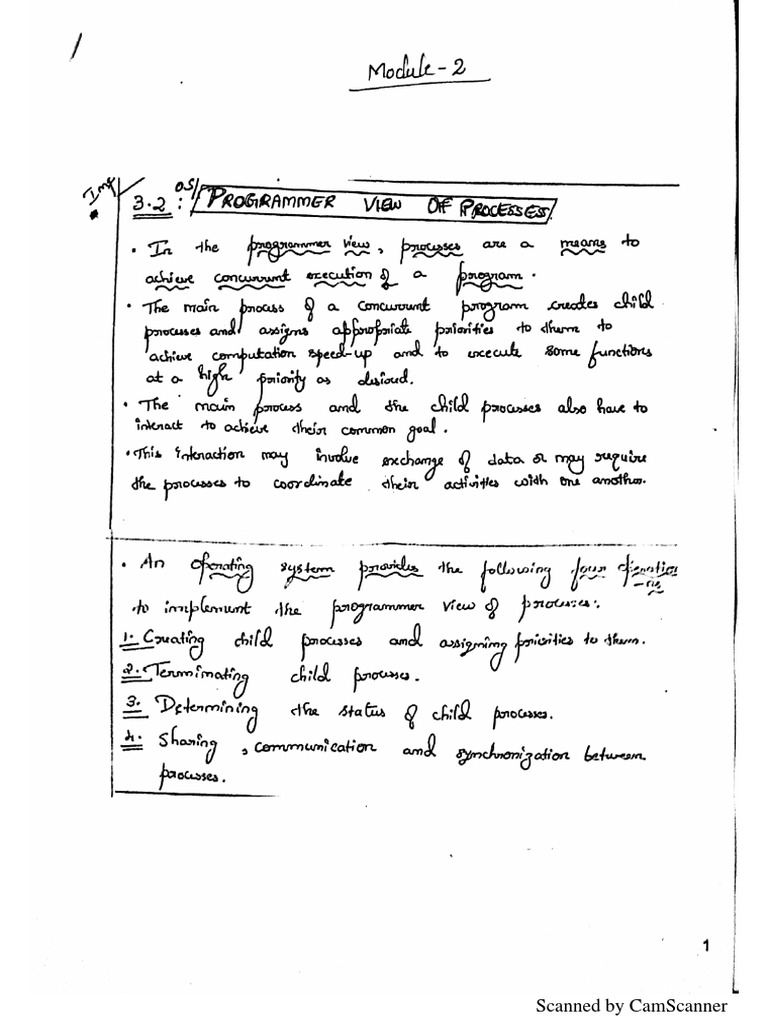 Module-2
Imp
3.2: OS/ PROGRAMMER VIEW OF PROCESSES
• In the programmer view, processes are a means to
achieve concurrent execution of a program.
• The main process of a concurrent program creates child
processes and assigns appropriate priorities to them to
achieve computation speed-up and to execute some functions
at a high priority as desired.
• The main process and the child processes also have to
interact to achieve their common goal.
• This interaction may involve exchange of data or may require
the processes to coordinate their activities with one another.
• An operating system provides the following four operation
-ns
to implement the programmer view of processes:
1. Creating child processes and assigning priorities to them.
2. Terminating child processes.
3. Determining the status of child processes.
4. Sharing, communication and synchronization between
processes.
1
Scanned by CamScanner